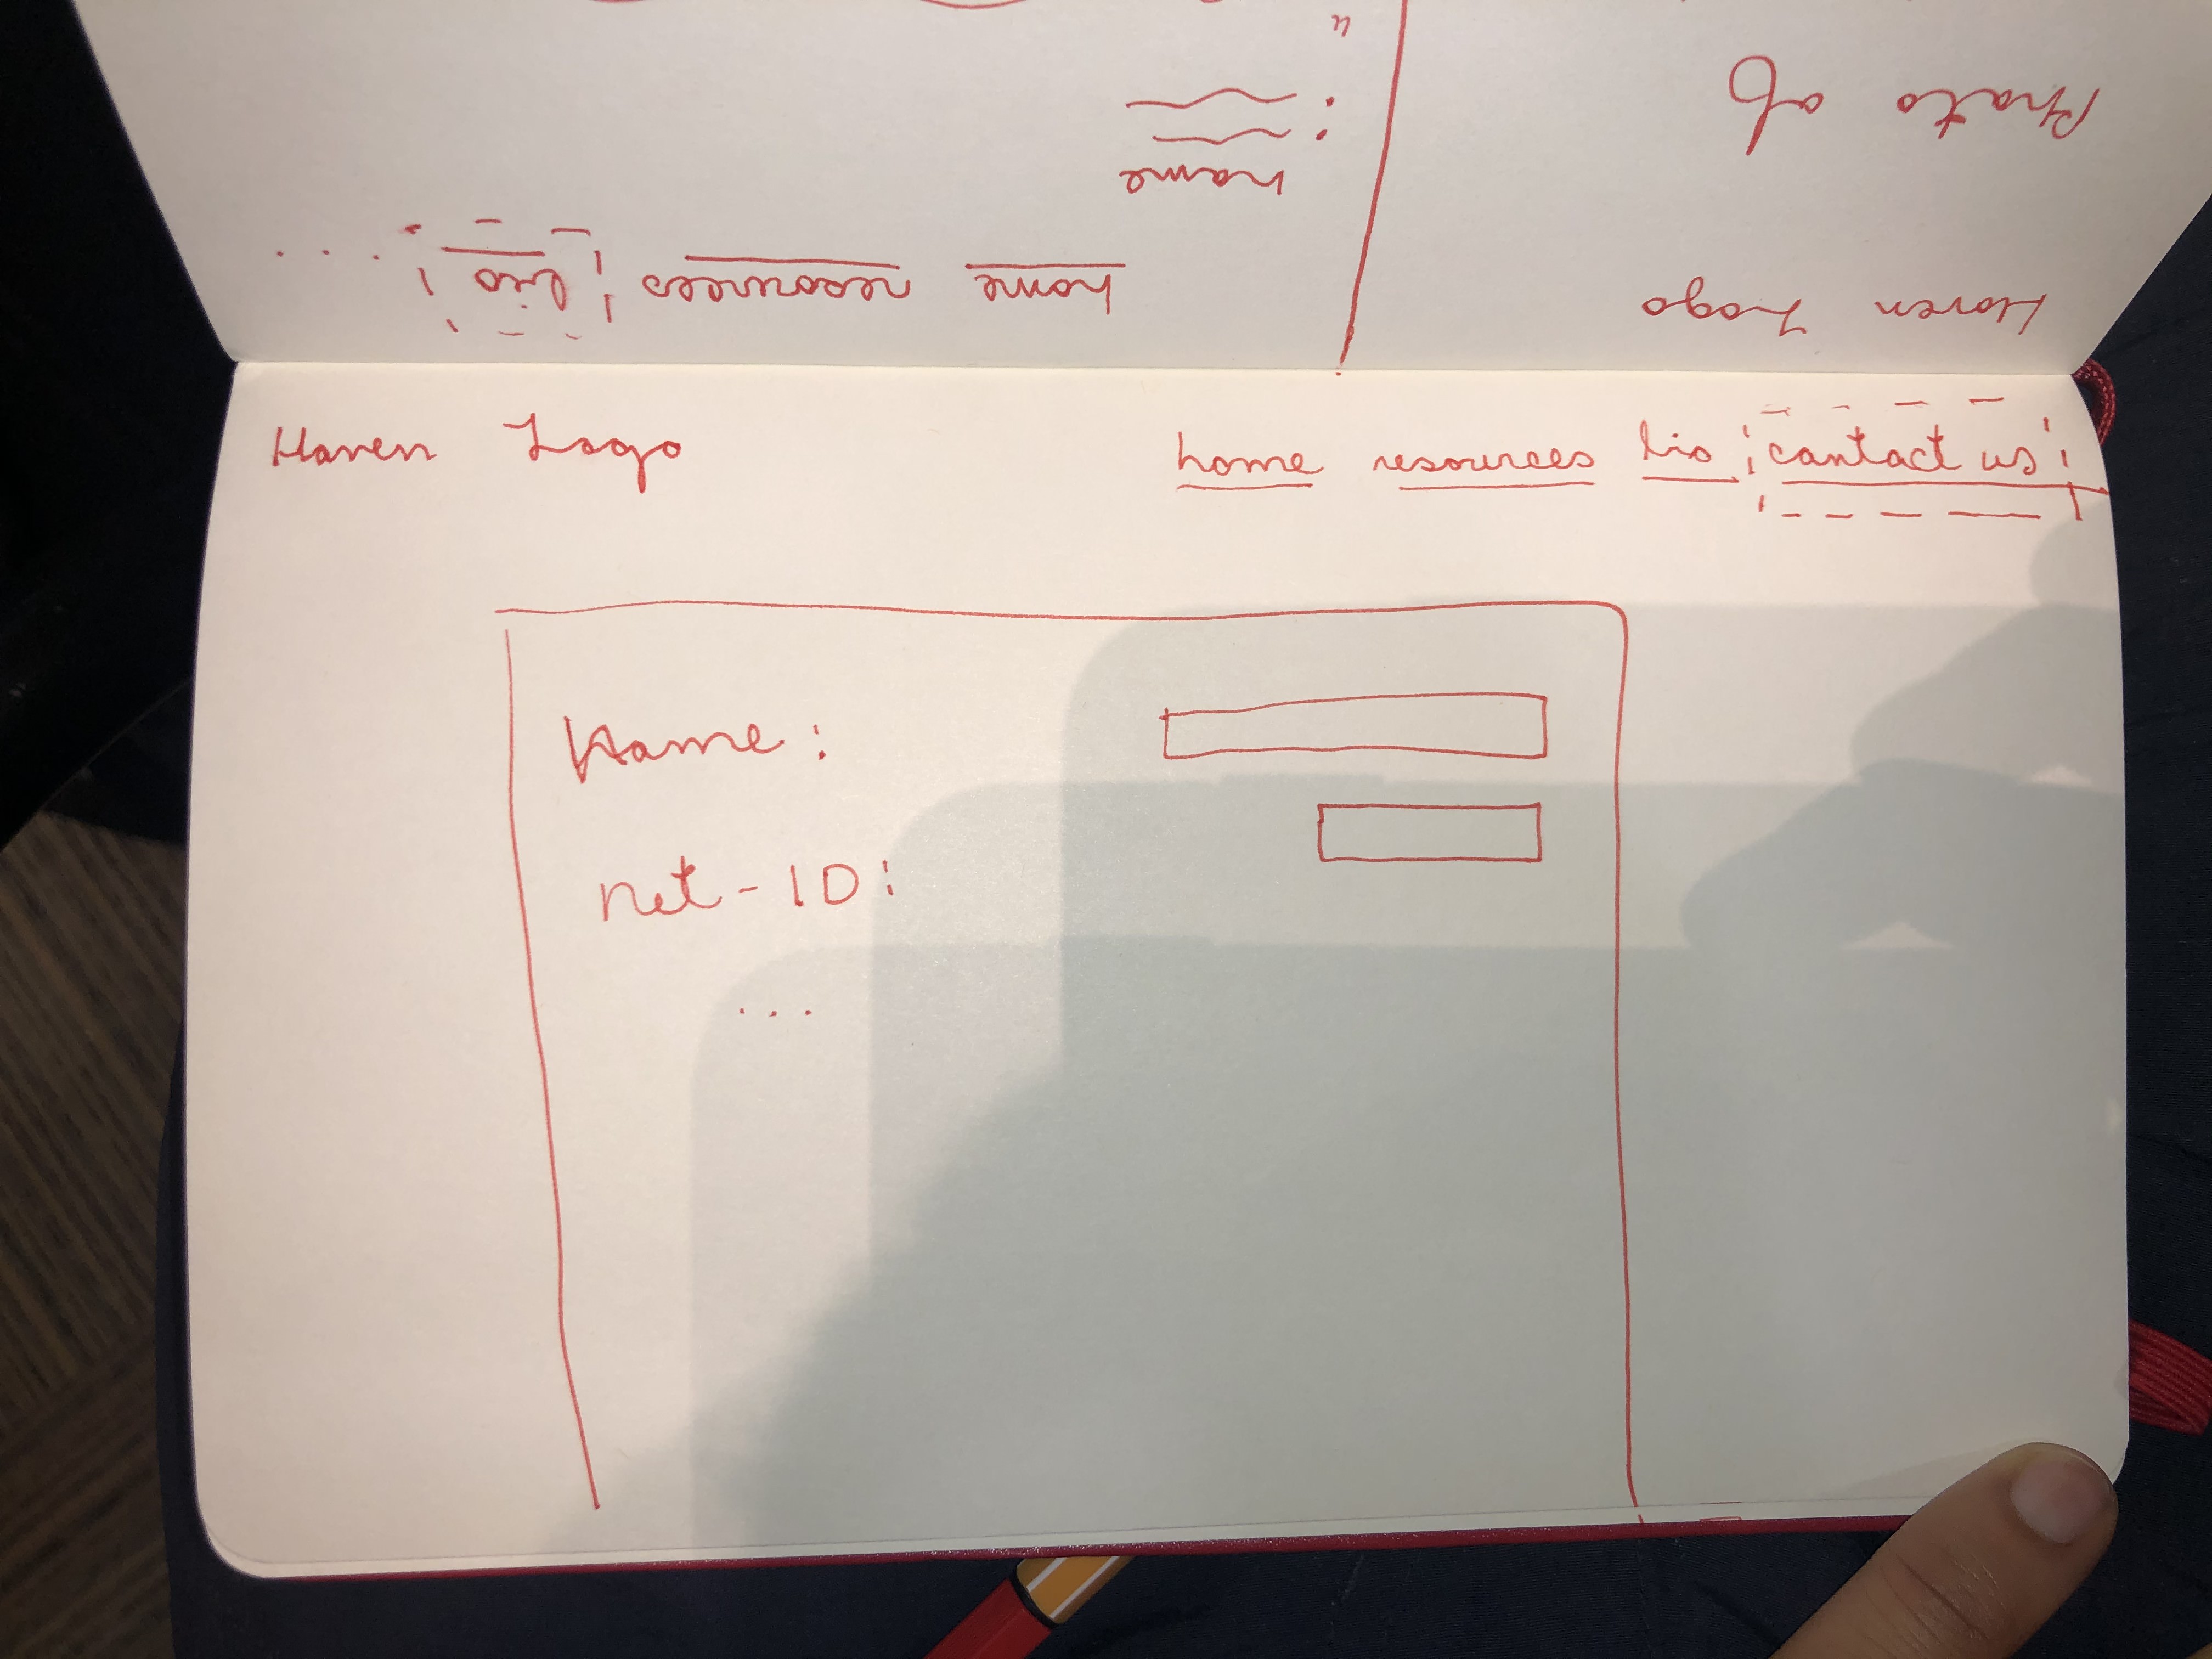 Haven Logo home resources bio contact us
Name:
net-ID:
...
Haven Logo home resources bio ...
Photo of name